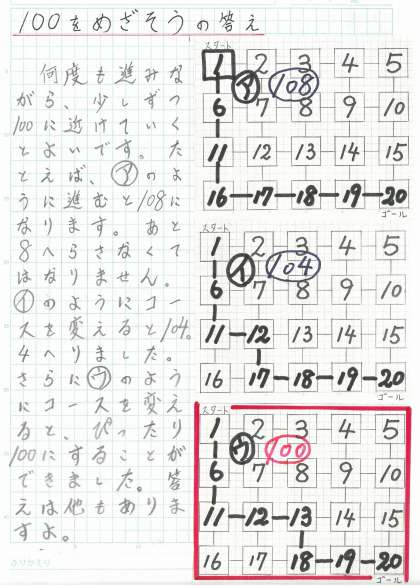 100をめざそうの答え
何度も進みな
がら、少しずつ
100に近けていく
とよいです。た
とえば、㋐のよ
うに進むと108に
なります。あと
8へらさなくて
はなりません。
㋑のようにコー
スを変えると104。
4へりました。
さらに㋒のよう
にコースを変え
ると、ぴったり
100にすることが
できました。答
えは他もありま
すよ。
スタート
1 2 3 4 5
㋐ 108
6 7 8 9 10
11 12 13 14 15
16 17 18 19 20
ゴール
スタート
1 2 3 4 5
㋑ 104
6 7 8 9 10
11 12 13 14 15
16 17 18 19 20
ゴール
スタート
1 2 3 4 5
㋒ 100
6 7 8 9 10
11 12 13 14 15
16 17 18 19 20
ゴール